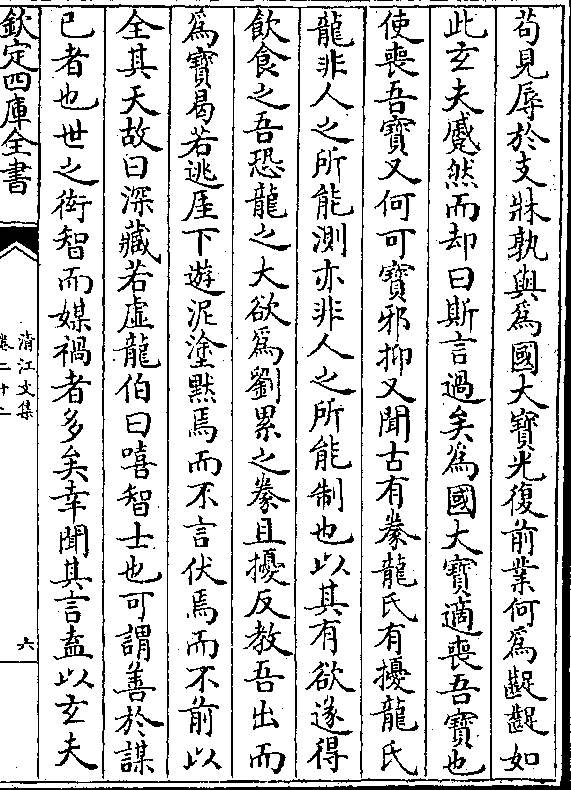 苟見辱於支牀孰與爲國大寶光復前業何爲齪齪如
此玄夫蹙然而却曰斯言過矣爲國大寶適喪吾寶也
使喪吾寶又何可寶邪抑又聞古有豢龍氏有擾龍氏
龍非人之所能測亦非人之所能制也以其有欲遂得
飲食之吾恐龍之大欲爲劉累之豢且擾反教吾出而
爲寶曷若逃厓下遊泥塗黙焉而不言伏焉而不前以
全其天故曰深藏若虛龍伯曰嘻智士也可謂善於謀
已者也世之衒智而媒禍者多矣幸聞其言盍以玄夫
欽定四庫全書
清江文集
卷二十二
六